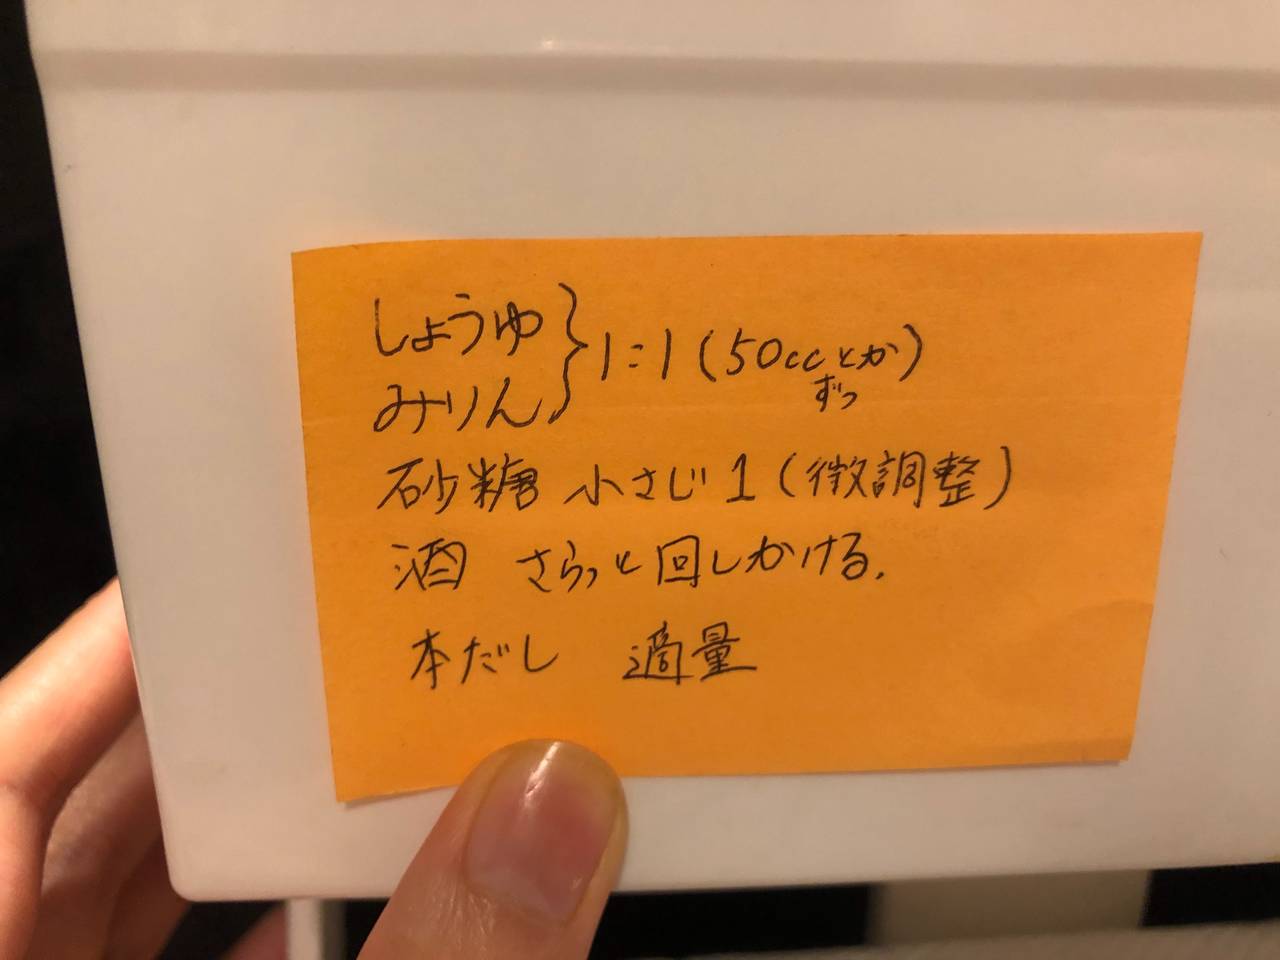 しょうゆ
みりん } 1:1 (50ccとか)
ずつ
砂糖 小さじ1(微調整)
酒 さらっと回しかける.
本だし 適量